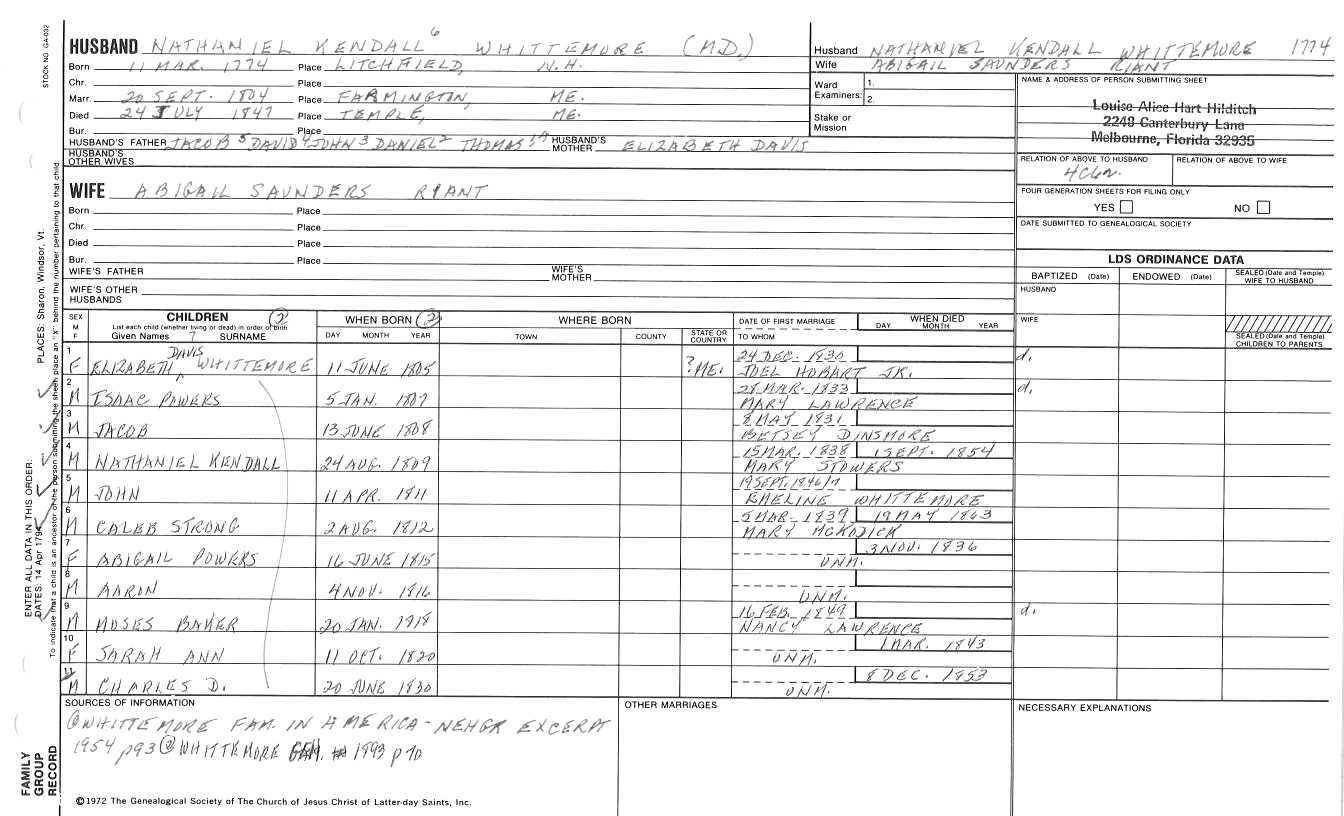 STOCK NO. GA-032
HUSBAND NATHANIEL KENDALL 6 WHITTEMORE (M.D.)
Born 11 MAR. 1774 Place LITCHFIELD, N.H.
Chr. Place
Marr. 20 SEPT. 1804 Place FARMINGTON, ME.
Died 24 JULY 1847 Place TEMPLE, ME.
Bur. Place
HUSBAND'S FATHER JACOB 5 DAVID 4 JOHN 3 DANIEL 2 THOMAS HUSBAND'S MOTHER ELIZABETH DAVIS
HUSBAND'S OTHER WIVES
Husband NATHANIEL KENDALL WHITTEMORE 1774
Wife ABIGAIL SAUNDERS RIANT
Ward Examiners: 1.
2.
Stake or Mission
NAME & ADDRESS OF PERSON SUBMITTING SHEET
Louise Alice Hart Hilditch
2248 Canterbury Lane
Melbourne, Florida 32935
RELATION OF ABOVE TO HUSBAND RELATION OF ABOVE TO WIFE
FOUR GENERATION SHEETS FOR FILING ONLY
YES NO
DATE SUBMITTED TO GENEALOGICAL SOCIETY
WIFE ABIGAIL SAUNDERS RIANT
Born Place
Chr. Place
Died Place
Bur. Place
WIFE'S FATHER WIFE'S MOTHER
WIFE'S OTHER HUSBANDS
LDS ORDINANCE DATA
BAPTIZED (Date) ENDOWED (Date) SEALED (Date and Temple) WIFE TO HUSBAND
HUSBAND
WIFE
SEALED (Date and Temple) CHILDREN TO PARENTS
SEX M F
CHILDREN (2)
List each child (whether living or dead) in order of birth
Given Names 7 SURNAME
WHEN BORN (2)
DAY MONTH YEAR
WHERE BORN
TOWN COUNTY STATE OR COUNTRY
DATE OF FIRST MARRIAGE
TO WHOM
WHEN DIED
DAY MONTH YEAR
1 F ELIZABETH DAVIS WHITTEMORE 11 JUNE 1805 ? ME. 24 DEC. 1830 d.
JOEL HOBART JR.
2 M ISAAC POWERS 5 JAN. 1807 28 MAR. 1833 d.
MARY LAWRENCE
3 M JACOB 13 JUNE 1808 8 MAY 1831
BETSEY DINSMORE
4 M NATHANIEL KENDALL 24 AUG. 1809 15 MAR. 1838 1 SEPT. 1854
MARY STOWERS
5 M JOHN 11 APR. 1811 19 SEPT. 1846/7
EMELINE WHITTEMORE
6 M CALEB STRONG 2 AUG. 1812 5 MAR. 1839 19 MAY 1863
MARY MCKODICK
7 F ABIGAIL POWERS 16 JUNE 1815 3 NOV. 1836
UNM.
8 M AARON 4 NOV. 1816
UNM.
9 M MOSES BAKER 20 JAN. 1818 16 FEB. 1849 d.
NANCY LAWRENCE
10 F SARAH ANN 11 OCT. 1820 1 MAR. 1843
UNM.
11 M CHARLES D. 20 JUNE 1830 8 DEC. 1853
UNM.
SOURCES OF INFORMATION
WHITTEMORE FAM. IN AMERICA - NEHGR EXCERPT
1954 p93 (2) WHITTEMORE GEN. 1993 p 70
OTHER MARRIAGES
NECESSARY EXPLANATIONS
©1972 The Genealogical Society of The Church of Jesus Christ of Latter-day Saints, Inc.
FAMILY GROUP RECORD
ENTER ALL DATA IN THIS ORDER:
DATES: 14 Apr 1794 PLACES: Sharon, Windsor, Vt.
To indicate that a child is an ancestor of the person submitting the sheet, place an "X" behind the number pertaining to that child.